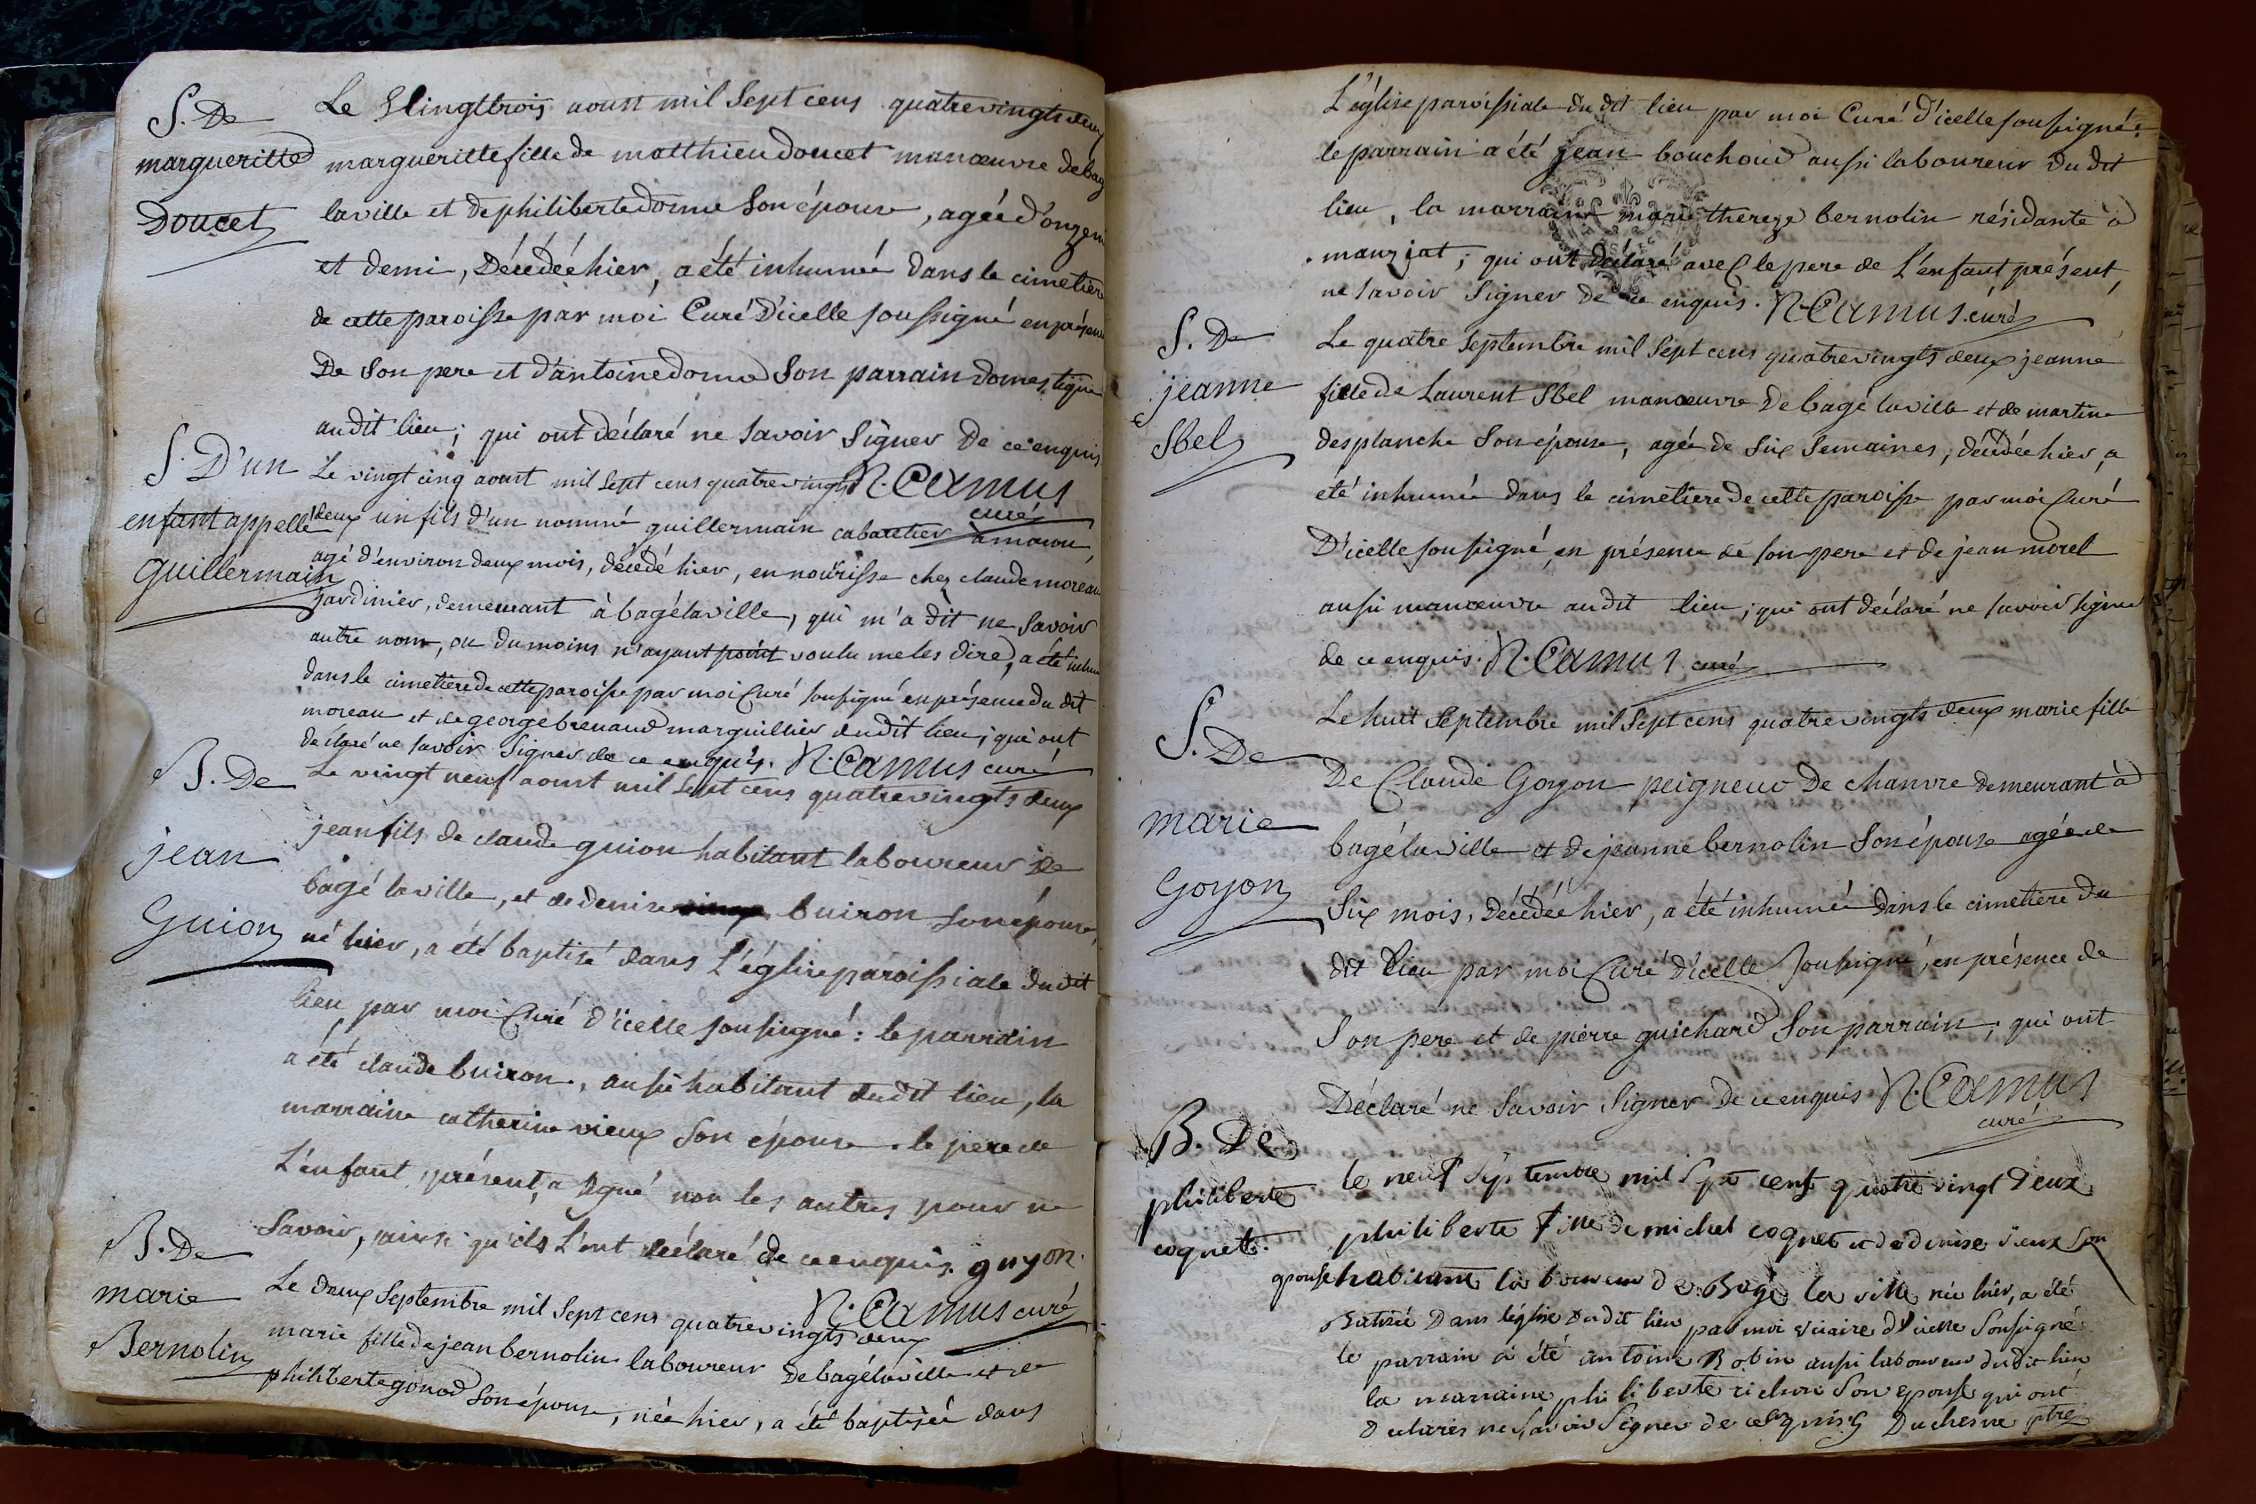 S. De
margueritte
Doucet
Le Vingttrois aoust mil Sept cens quatrevingts deux
margueritte fille de matthieu doucet manœuvre de bagé
laville et de philiberte dome son épouse, agée d'onze ans
et demi, Décédée hier, a été inhumée dans le cimetiere
de cette paroisse par moi Curé D'icelle soussigné en présence
De son pere et d'antoine dome son parrain domestique
audit lieu; qui ont déclaré ne savoir signer De ce enquis
N. Camus
curé
S. D'un
enfant appellé
Guillermain
Le vingt cinq aoust mil sept cens quatrevingts
deux un fils d'un nommé guillermain cabaretier a macon,
agé d'environ deux mois, décédé hier, en nourisse chez claude moreau
jardinier, demeurant à bagélaville, qui m'a dit ne savoir
autre nom, ou dumoins n'ayant point voulu me les dire, a été inhumé
dans le cimetiere de cette paroisse par moi Curé soussigné en présence du dit
moreau et de george brenaud marguillier dudit lieu; qui ont
déclaré ne savoir signer de ce enquis. N. Camus curé
B. De
jean
Guion
Le vingt neuf aoust mil sept cens quatrevingts deux
jean fils de claude guion habitant laboureur de
bagé laville, et de denise buiron son épouse,
né hier, a été baptisé dans L'église paroissiale dudit
lieu par moi Curé d'icelle soussigné: le parrain
a été claude buiron, aussi habitant dudit lieu, la
marraine catherine vieux son épouse. le pere de
L'enfant, présent, a signé non les autres pour ne
Savoir, ainsi qu'ils L'ont déclaré de ce enquis. guyon.
N. Camus curé
B. De
marie
Bernolin
Le deux Septembre mil Sept cens quatrevingts deux
marie fille de jean bernolin laboureur de bagélaville et de
philiberte gonod son épouse, née hier, a été baptisée dans
L'église paroissiale du dit lieu par moi Curé d'icelle soussigné:
le parrain a été jean bouchoud aussi laboureur du dit
lieu, la marraine marie thereze bernolin résidante à
manziat; qui ont déclaré avec le pere de L'enfant présent,
ne savoir signer de ce enquis. N. Camus. curé
S. De
jeanne
Sbel
Le quatre Septembre mil Sept cens quatrevingts deux jeanne
fille de Laurent Sbel manœuvre de bagé laville et de martine
desplanche son épouse, agée de six semaines, décédée hier, a
été inhumée dans le cimetiere de cette paroisse par moi Curé
D'icelle soussigné, en présence de son pere et de jean morel
aussi manœuvre audit lieu; qui ont déclaré ne savoir signer
de ce enquis. N. Camus curé
S. De
marie
Goyon
Le huit Septembre mil Sept cens quatrevingts deux marie fille
De Claude Goyon peigneur De chanvre demeurant à
bagé laville et de jeanne bernolin son épouse agée de
Six mois, Décédée hier, a été inhumée dans le cimetiere du
dit lieu par moi Curé d'icelle soussigné, en présence de
Son pere et de pierre guichard Son parrain; qui ont
Déclaré ne savoir Signer De ce enquis N. Camus
curé
B. De
philiberte
coquet.
le neuf Septembre mil Sept cens quatre vingt Deux
philiberte fille de michel coquet et de denise vieux son
epouse habitant laboureur de Bagé la ville née hier, a été
Batisée Dans léglise Dudit lieu par moi vicaire d'icelle Soussigné
le parrain a été antoine Robin aussi laboureur dudit lieu
la marraine philiberte richon son epouse qui ont
Déclarés ne savoir signer de ce enquis Duchesne ptre